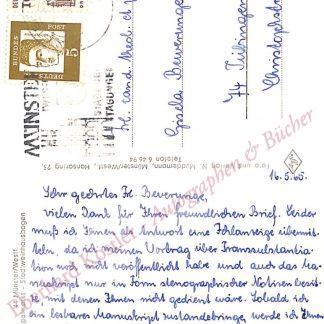 5
DEUTSCHE BUNDESPOST
MÜNSTER
Frl. cand. med. et
Gisela Beuverunge
74 Tübingen
Christophstr.
Foto und Verlag N. Muddemann, Münster/Westf., Hansaring 73,
Telefon 6 46 94
16.5.65
Sehr geehrtes Frl. Beverunge,
vielen Dank für Ihren freundlichen Brief. Leider
muß ich Ihnen als Antwort eine Fehlanzeige übermit-
teln, da ich meinen Vortrag über Transsubstantia-
tion noch nicht veröffentlicht habe und auch das Ma-
nuskript nur in Form stenographischer Notizen besit-
ze, mit denen Ihnen nicht gedient wäre. Sobald ich
ein lesbares Manuskript zustandebringe, werde ich Ihnen
Münster/Westf.
Stadtweinhausbogen
Autographen & Bücher